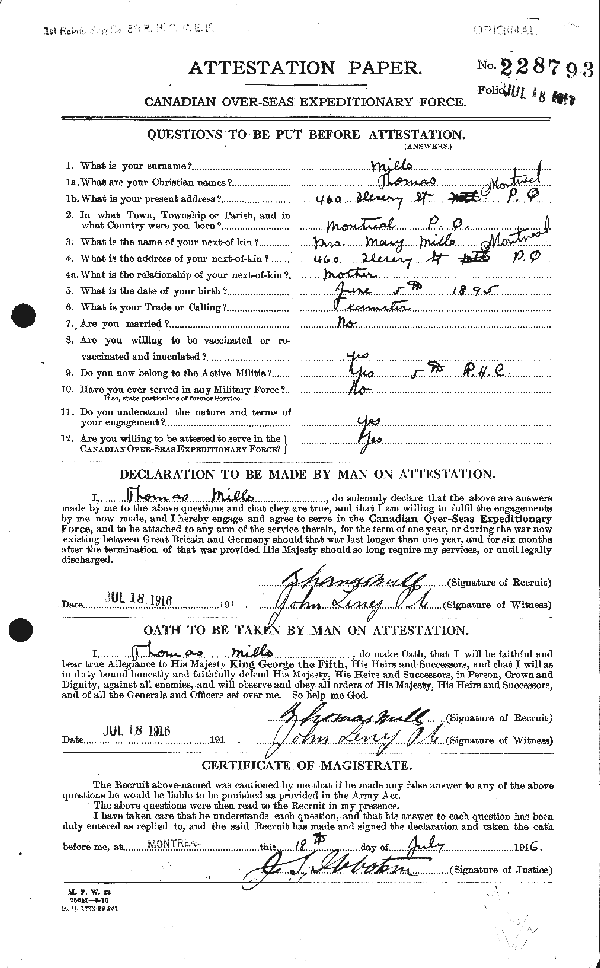 ORIGINAL
ATTESTATION PAPER.
No. 228793
Folio. JUL 18 1916
CANADIAN OVER-SEAS EXPEDITIONARY FORCE.
QUESTIONS TO BE PUT BEFORE ATTESTATION.
(ANSWERS.)
1. What is your surname? Mills
1a. What are your Christian names? Thomas
1b. What is your present address? 460 St Montreal P.Q
2. In what Town, Township or Parish, and in
what Country were you born? Montreal P.Q.
3. What is the name of your next-of kin? Mrs. Mary Mills
4. What is the address of your next-of-kin? 460 St Montreal P.Q
4a. What is the relationship of your next-of-kin? Mother
5. What is the date of your birth? June 5th 1895
6. What is your Trade or Calling? Teamster
7. Are you married? No
8. Are you willing to be vaccinated or re-
vaccinated and inoculated? Yes
9. Do you now belong to the Active Militia? Yes 5th R.H.C.
10. Have you ever served in any Military Force? No
If so, state particulars of former Service.
11. Do you understand the nature and terms of
your engagement? Yes
12. Are you willing to be attested to serve in the
CANADIAN OVER-SEAS EXPEDITIONARY FORCE? Yes
DECLARATION TO BE MADE BY MAN ON ATTESTATION.
I, Thomas Mills, do solemnly declare that the above are answers
made by me to the above questions and that they are true, and that I am willing to fulfil the engagements
by me now made, and I hereby engage and agree to serve in the Canadian Over-Seas Expeditionary
Force, and to be attached to any arm of the service therein, for the term of one year, or during the war now
existing between Great Britain and Germany should that war last longer than one year, and for six months
after the termination of that war provided His Majesty should so long require my services, or until legally
discharged.
Thomas Mills (Signature of Recruit)
Date JUL 18 1916 191 John (Signature of Witness)
OATH TO BE TAKEN BY MAN ON ATTESTATION.
I, Thomas Mills, do make Oath, that I will be faithful and
bear true Allegiance to His Majesty King George the Fifth, His Heirs and Successors, and that I will as
in duty bound honestly and faithfully defend His Majesty, His Heirs and Successors, in Person, Crown and
Dignity, against all enemies, and will observe and obey all orders of His Majesty, His Heirs and Successors,
and of all the Generals and Officers set over me. So help me God.
Thomas Mills (Signature of Recruit)
Date JUL 18 1916 191 John (Signature of Witness)
CERTIFICATE OF MAGISTRATE.
The Recruit above-named was cautioned by me that if he made any false answer to any of the above
questions he would be liable to be punished as provided in the Army Act.
The above questions were then read to the Recruit in my presence.
I have taken care that he understands each question, and that his answer to each question has been
duly entered as replied to, and the said Recruit has made and signed the declaration and taken the oath
before me, at MONTREAL this 18th day of July 1916.
(Signature of Justice)
M. F. W. 23